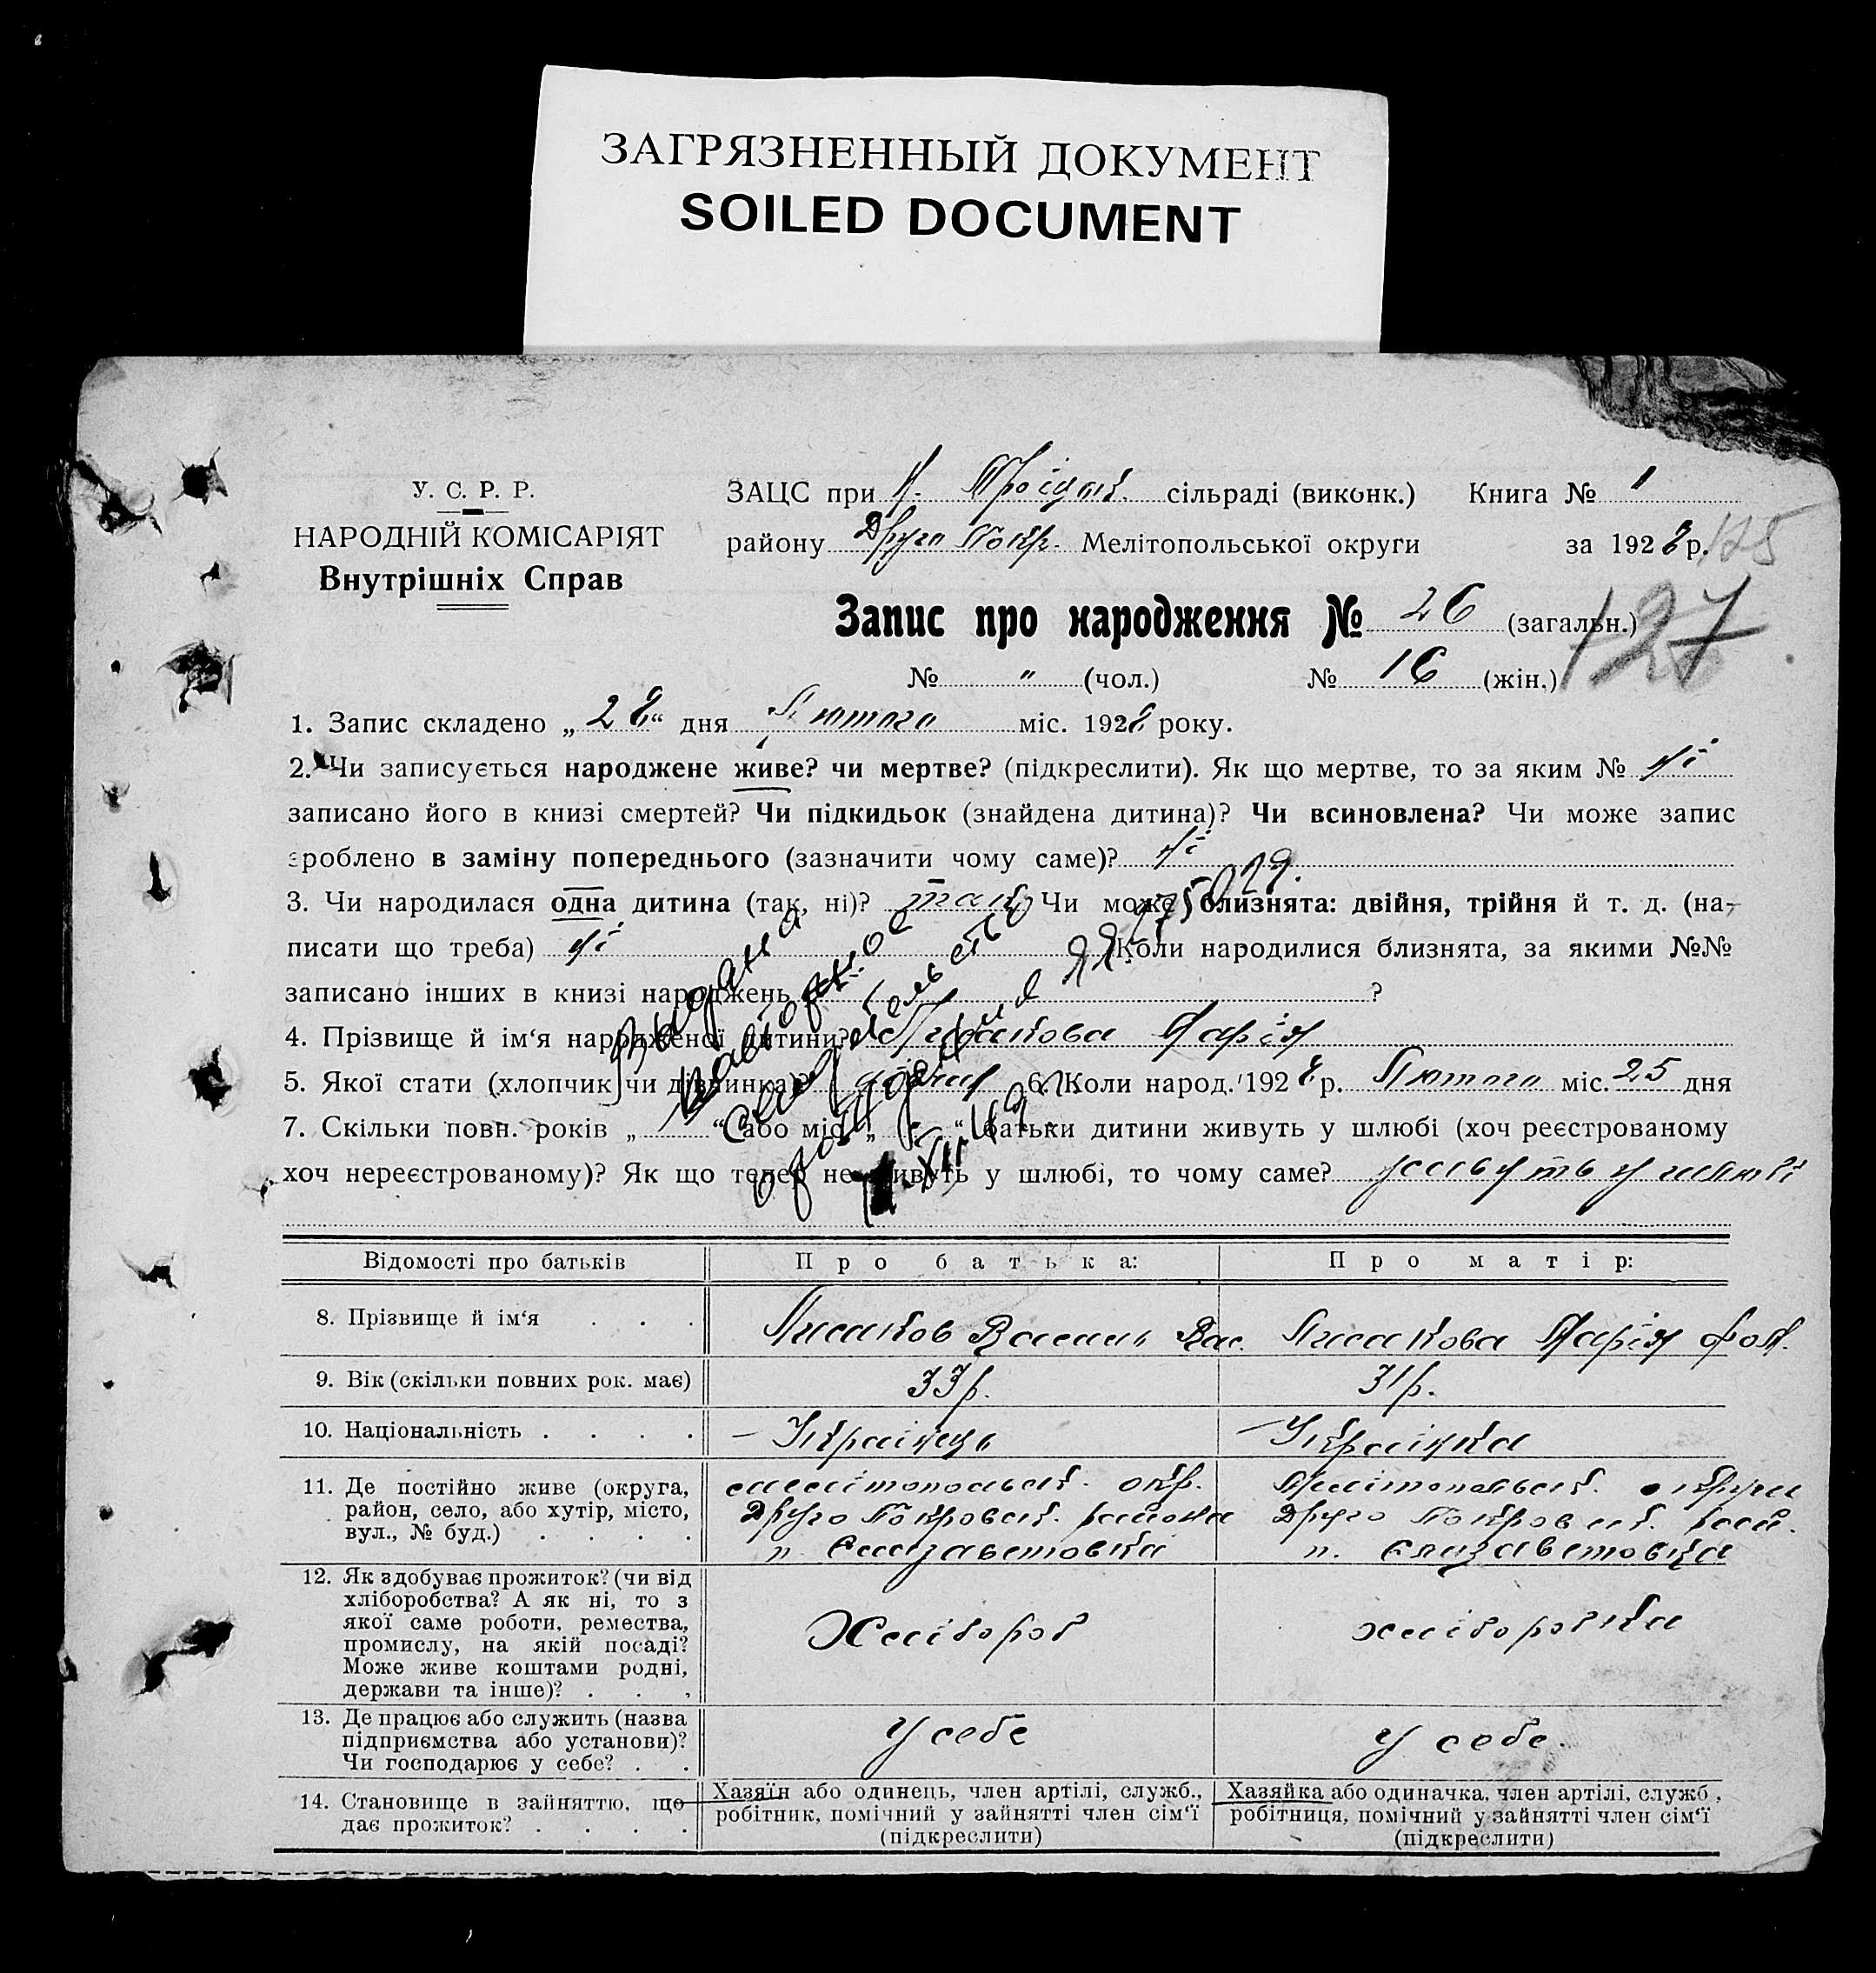 ЗАГРЯЗНЕННЫЙ ДОКУМЕНТ
SOILED DOCUMENT
У. С. Р. Р.
НАРОДНІЙ КОМІСАРІЯТ
Внутрішніх Справ
ЗАЦС при Н. Троїцьк. сільраді (виконк.) Книга № 1
району Друго Покр. Мелітопольської округи за 1928 р. 125
Запис про народження № 26 (загальн.) 127
№ " (чол.) № 16 (жін.)
1. Запис складено „ 28 “ дня Лютого міс. 1928 року.
2. Чи записується народжене живе? чи мертве? (підкреслити). Як що мертве, то за яким № ні
записано його в книзі смертей? Чи підкидьок (знайдена дитина)? Чи всиновлена? Чи може запис
зроблено в заміну попереднього (зазначити чому саме)? ні
3. Чи народилася одна дитина (так, ні)? так Чи може близнята: двійня, трійня й т. д. (на-
писати що треба) ні Коли народилися близнята, за якими №№
записано інших в книзі народжень ?
4. Прізвище й ім‘я народженої дитини? Лисакова Марія
5. Якої стати (хлопчик чи дівчинка)? дівчина 6. Коли народ. 1928 р. Лютого міс. 25 дня
7. Скільки повн. років „ “ або міс. „ “ батьки дитини живуть у шлюбі (хоч реєстрованому
хоч нереєстрованому)? Як що тепер не живуть у шлюбі, то чому саме? живуть у шлюбі
Выдано
повторное
свидетельство
о рождении
Відомості про батьків Про батька: Про матір:
8. Прізвище й ім‘я . . . Лисаков Василь Вас. Лисакова Марія Фом.
9. Вік (скільки повних рок. має) 33 р. 31 р.
10. Національність . . . . Українець Українка
11. Де постійно живе (округа, Мелітопольськ. окр. Мелітопольськ. округи
район, село, або хутір, місто, Друго Покровськ. района Друго Покровськ. рай.
вул., № буд.) . . . . п. Елизаветовка п. Елизаветовка
12. Як здобуває прожиток? (чи від
хліборобства? А як ні, то з
якої саме роботи, ремества, Хлібороб хліборобка
промислу, на якій посаді?
Може живе коштами родні,
держави та інше)? . . .
13. Де працює або служить (назва
підприємства або установи)? у себе у себе.
Чи господарює у себе? . .
14. Становище в зайняттю, що Хазяїн або одинець, член артілі, служб., Хазяйка або одиначка, член артілі, служб.,
дає прожиток? . . . . робітник, помічний у зайнятті член сім‘ї робітниця, помічний у зайнятті член сім‘ї
(підкреслити) (підкреслити)